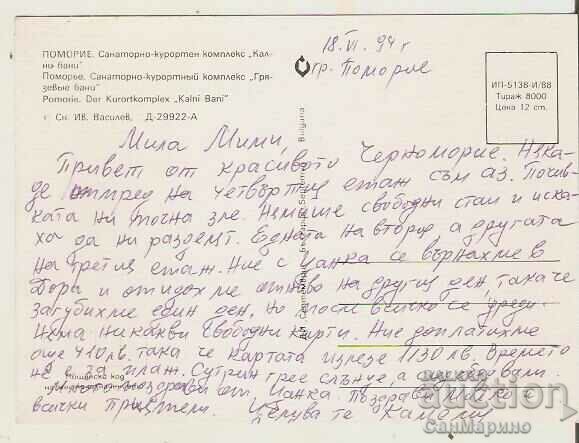 18.VI.94 г
гр. Поморие
ПОМОРИЕ. Санаторно-курортен комплекс „Кал-
ни бани"
Поморье. Санаторно-курортный комплекс „Гря-
зевые бани"
Pomorie. Der Kurortkomplex „Kalni Bani"
Сн. Ив. Василев, Д-29922-А
ИП-5138-И/88
Тираж 8000
Цена 12 ст.
Bulgaria
Мила Мими,
Привет от красивото Черноморие. Няка-
де отпред на четвъртия етаж съм аз. Почив-
ката ни почна зле. Нямаше свободни стаи и иска-
ха да ни разделят. Едната на втория, а другата
на третия етаж. Ние с Цанка се върнахме в
и отидохме отново на другия ден, така че
загубихме един ден, но после всичко се уреди.
Няма никакви свободни карти. Ние доплатихме
още 410 лв. така че картата излезе 1130 лв. Времето
не е за плаж. Сутрин грее слънце, а
Пощенски код
поздрави от Цанка. Поздрави и
всички приятели. Целува те
auction
СанМарино